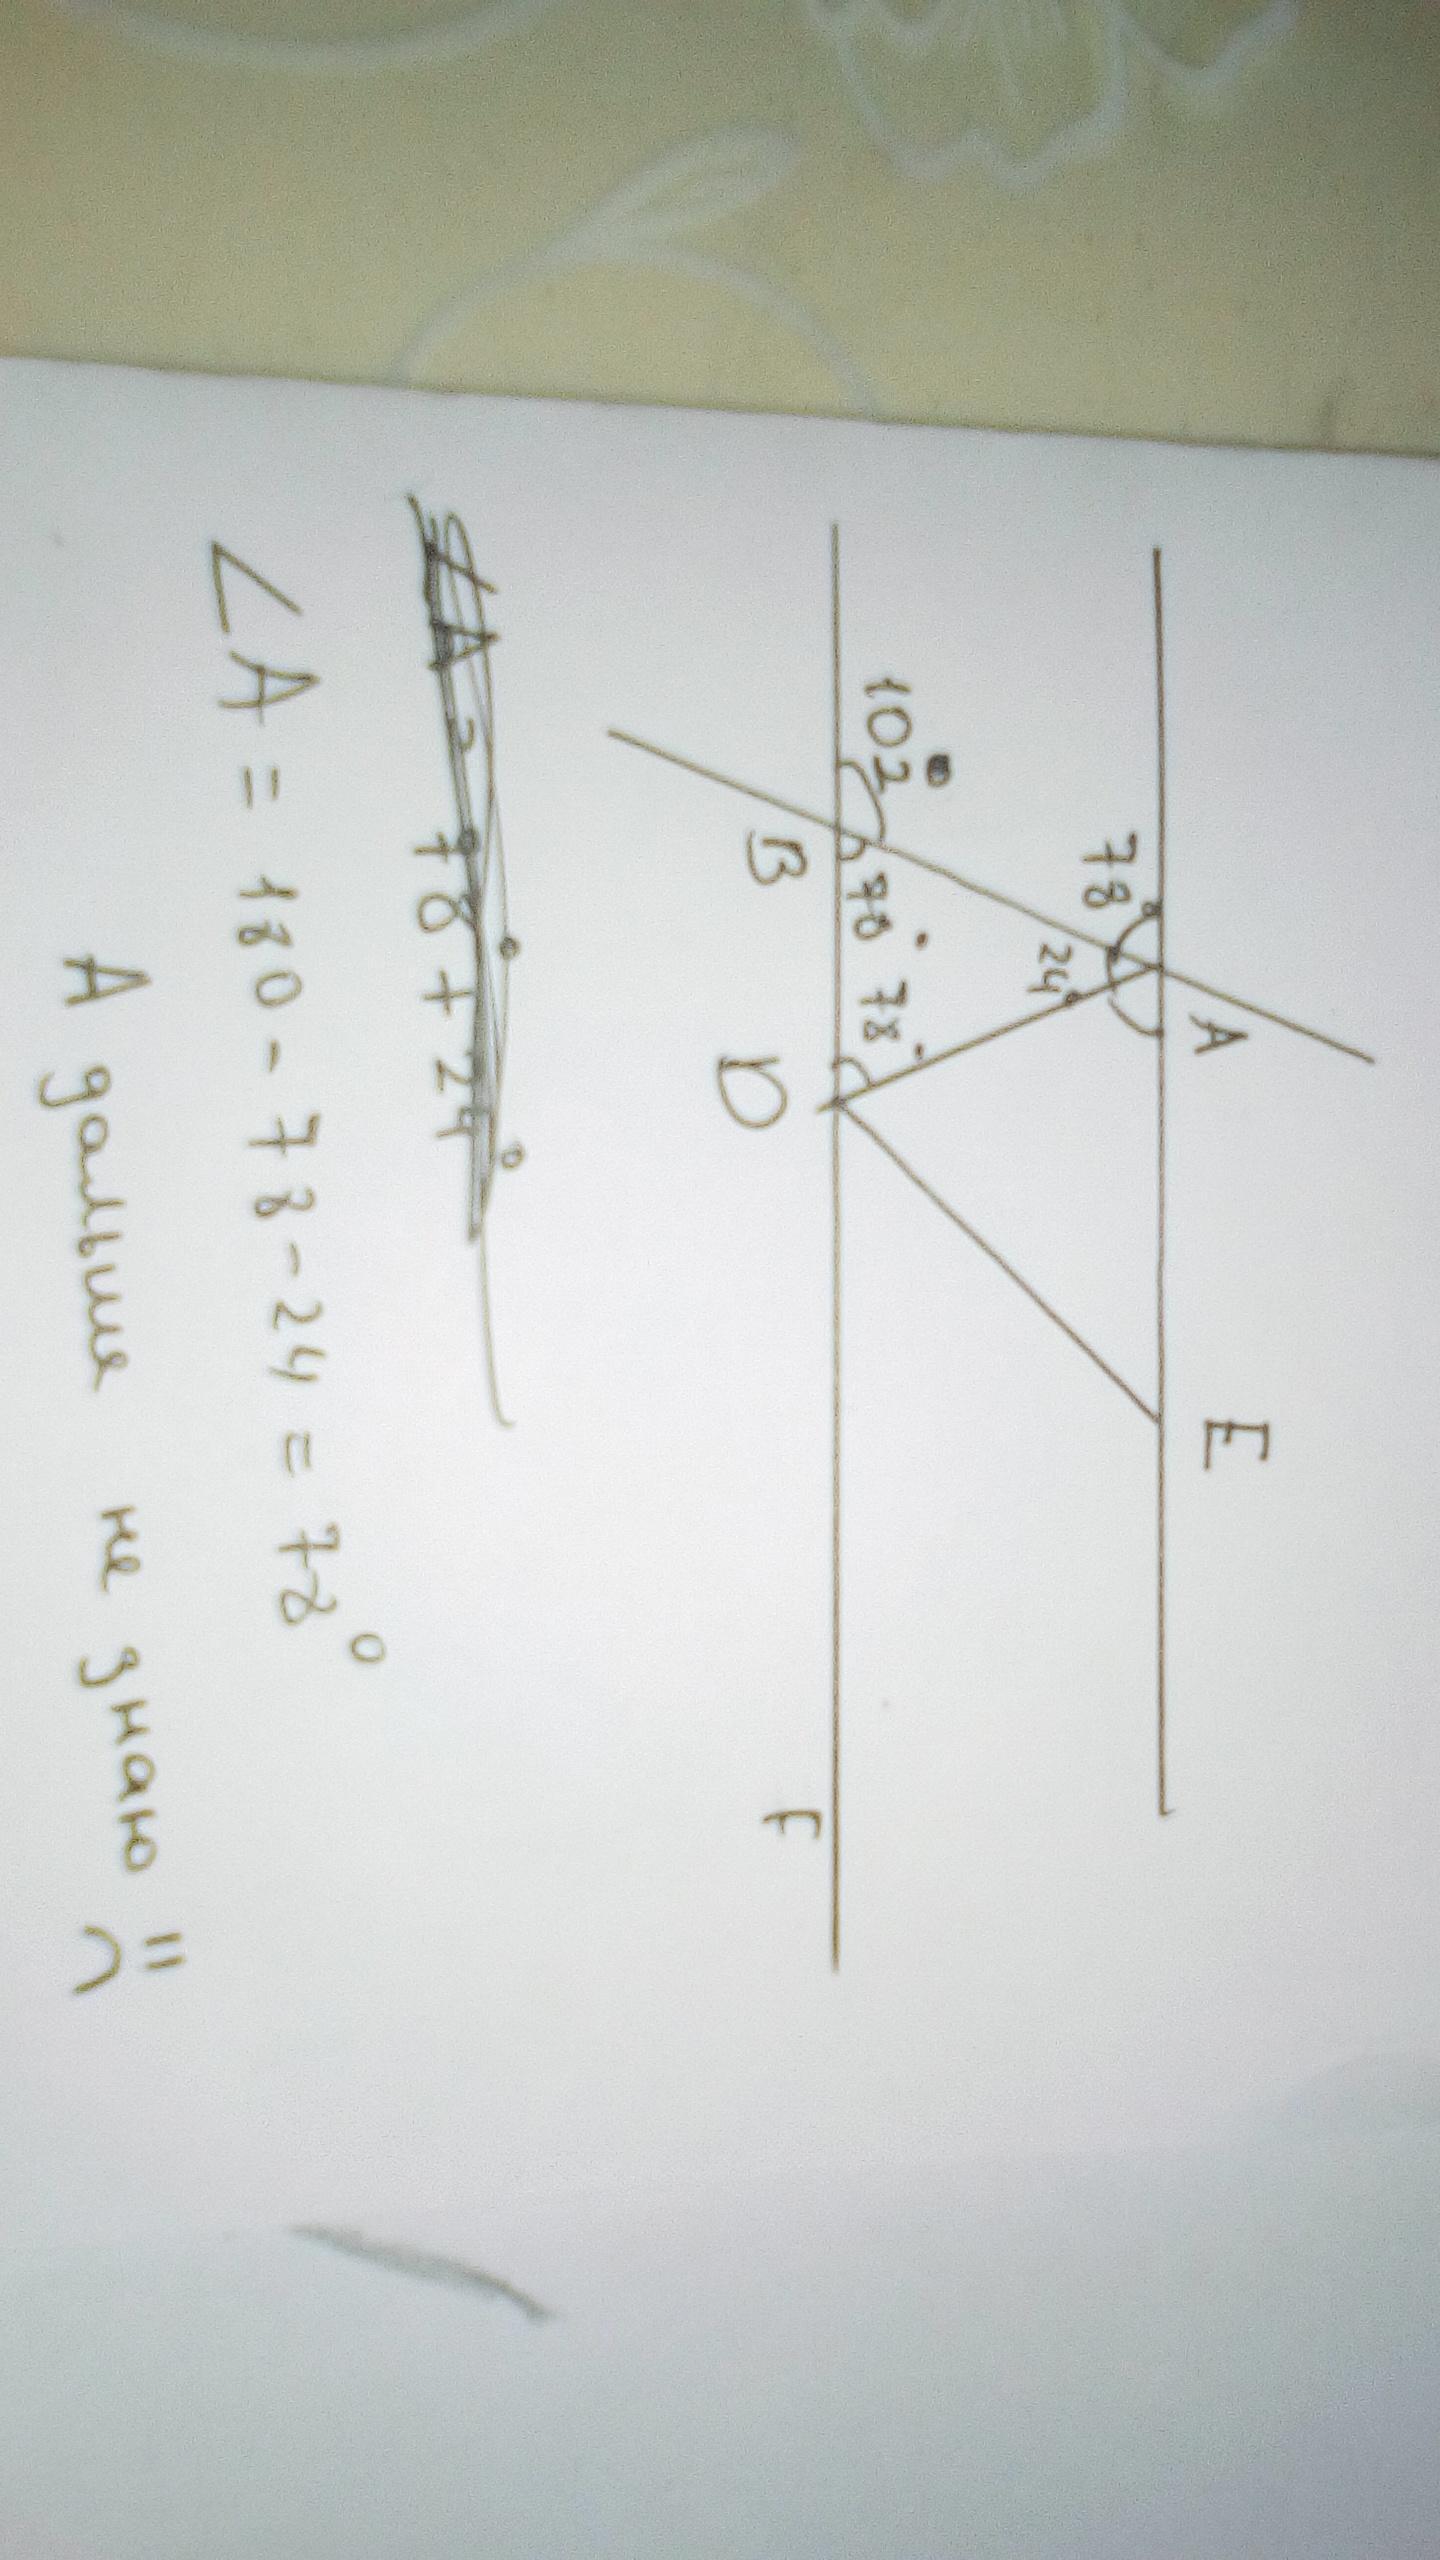 A
E
78°
24°
102
78° 78°
B
D
F
∠A = 78 + 24°
∠A = 180 - 78 - 24 = 78°
А дальше не знаю